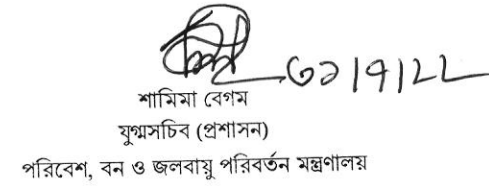 ৩১/৭/২২
শামিমা বেগম
যুগ্মসচিব (প্রশাসন)
পরিবেশ, বন ও জলবায়ু পরিবর্তন মন্ত্রণালয়